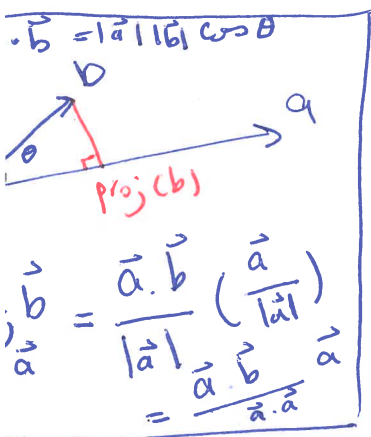 . b⃗ = |a⃗| |b⃗| cos θ
b
a
θ
proj(b)
, b⃗ = a⃗ . b⃗ / |a⃗| ( a⃗ / |a⃗| )
a⃗
= a⃗ . b⃗ / a⃗ . a⃗ a⃗